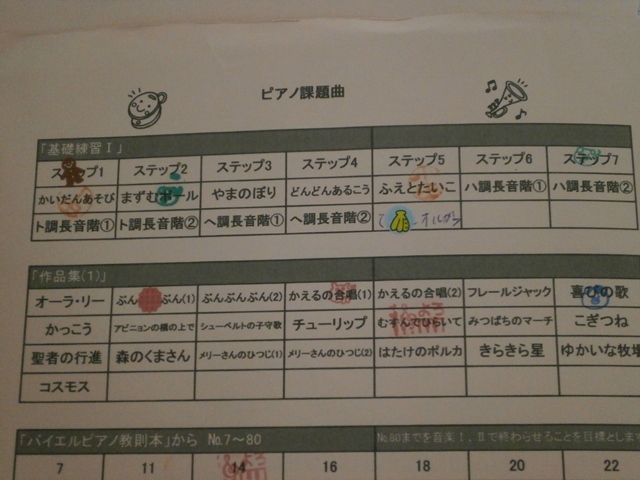 ピアノ課題曲
「基礎練習Ⅰ」
ステップ1 ステップ2 ステップ3 ステップ4 ステップ5 ステップ6 ステップ7
かいだんあそび まずむボール やまのぼり どんどんあるこう ふえとたいこ ハ調長音階① ハ調長音階②
ト調長音階① ト調長音階② ヘ調長音階① ヘ調長音階②
「作品集(1)」
オーラ・リー ぶんぶんぶん(1) ぶんぶんぶん(2) かえるの合唱(1) かえるの合唱(2) フレールジャック 喜びの歌
かっこう アビニョンの橋の上で シューベルトの子守歌 チューリップ むすんでひらいて みつばちのマーチ こぎつね
聖者の行進 森のくまさん メリーさんのひつじ(1) メリーさんのひつじ(2) はたけのポルカ きらきら星 ゆかいな牧場
コスモス
「バイエルピアノ教則本」から №7～80 №80までを音楽Ⅰ、Ⅱで終わらせることを目標とします
7 11 14 16 18 20 22